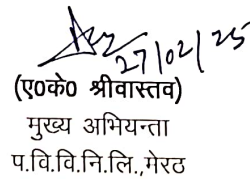 27/02/25
(ए0के0 श्रीवास्तव)
मुख्य अभियन्ता
प.वि.वि.नि.लि.,मेरठ